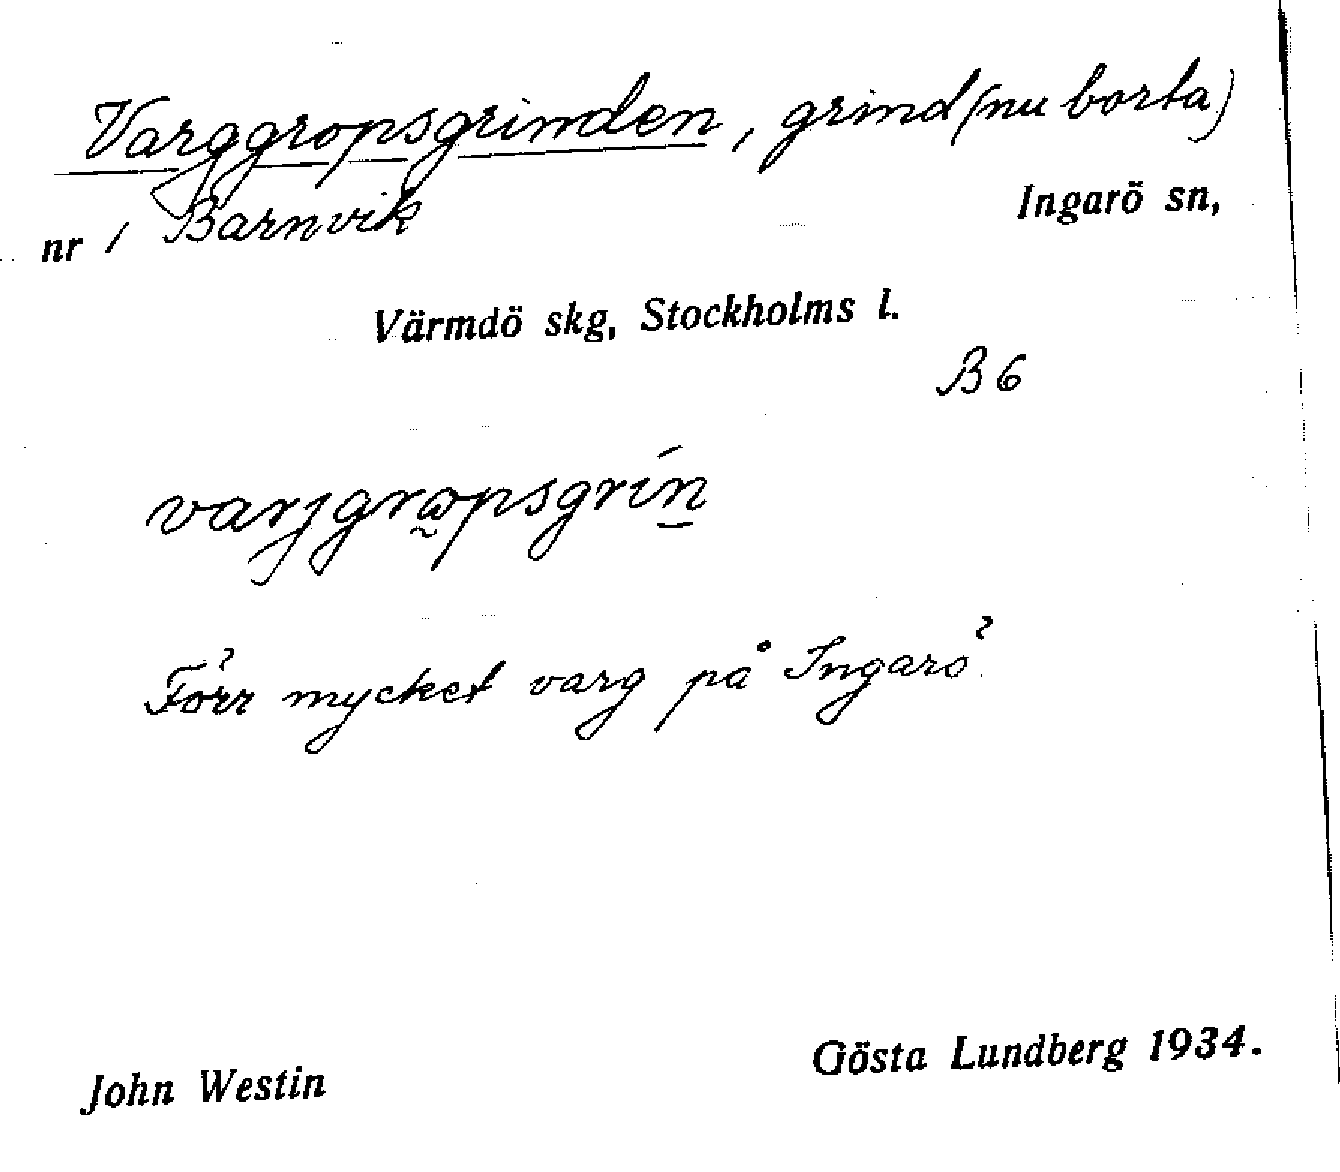 Varggropsgrinden, grind (nu borta)
nr 1 Barnvik Ingarö sn,
Värmdö skg, Stockholms l.
B 6
varjgrωpsgrín
Förr mycket varg på Ingarö.
John Westin Gösta Lundberg 1934.